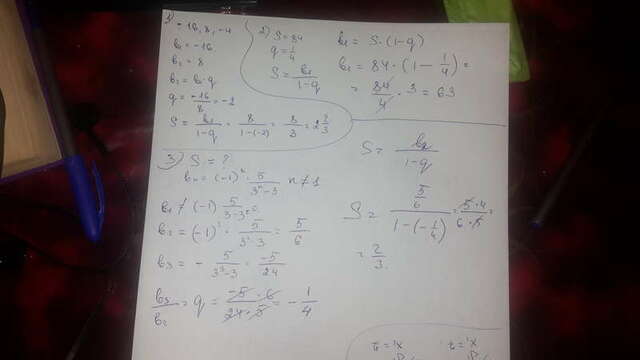 1) -16, 8, -4
b₁ = -16
b₂ = 8
b₂ = b₁·q
q = -16/8 = -1
S = b₁/(1-q) = 8/(1-(-2)) = 8/3 = 2 2/3
2) S = 84
q = 1/4
S = b₁/(1-q)
b₁ = S·(1-q)
b₁ = 84·(1 - 1/4) =
= 84/4 · 3 = 63
3) S = ?
bₙ = (-1)ⁿ · 5/(3ⁿ-3) n ≠ 1
b₁ ≠ (-1) 5/(3-3)
b₂ = (-1)² · 5/(3²-3) = 5/6
b₃ = - 5/(3³-3) = -5/24
b₃/b₂ = q = (-5·6)/(24·5) = -1/4
S = b₂/(1-q)
S = (5/6)/(1-(-1/4)) = (5·4)/(6·5) =
= 2/3.